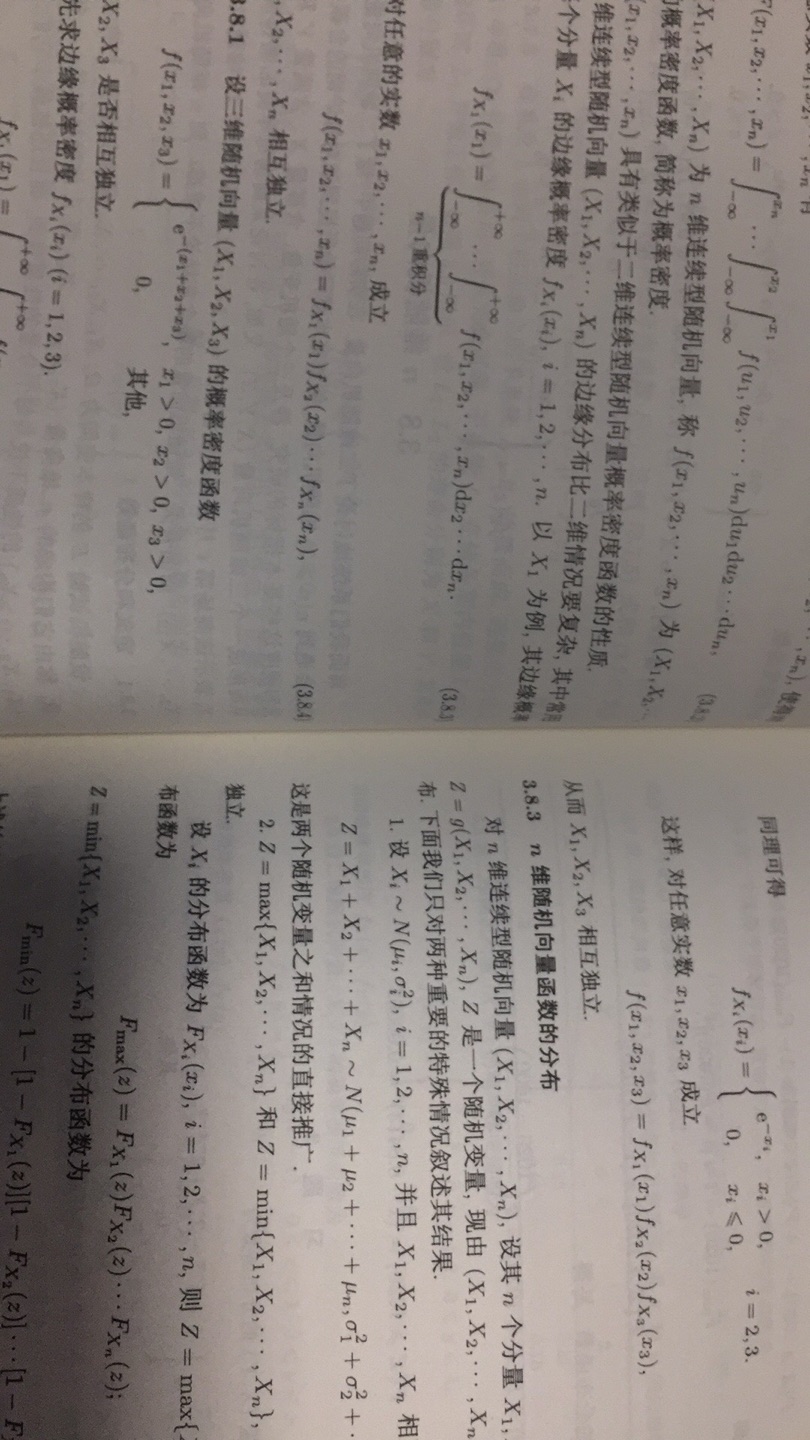 F(x₁, x₂, ⋯, xₙ) = ∫_{-∞}^{xₙ} ⋯ ∫_{-∞}^{x₂} ∫_{-∞}^{x₁} f(u₁, u₂, ⋯, uₙ)du₁du₂⋯duₙ,
X₁, X₂, ⋯, Xₙ) 为 n 维连续型随机向量, 称 f(x₁, x₂, ⋯, xₙ) 为 (X₁, X₂,
概率密度函数, 简称为概率密度.
(x₁, x₂, ⋯, xₙ) 具有类似于二维连续型随机向量概率密度函数的性质.
维连续型随机向量 (X₁, X₂, ⋯, Xₙ) 的边缘分布比二维情况要复杂, 其中常用
个分量 Xᵢ 的边缘概率密度 f_{Xᵢ}(xᵢ), i = 1, 2, ⋯, n. 以 X₁ 为例, 其边缘概率
f_{X₁}(x₁) = ∫_{-∞}^{+∞} ⋯ ∫_{-∞}^{+∞} f(x₁, x₂, ⋯, xₙ)dx₂⋯dxₙ. (3.8.3)
n−1 重积分
对任意的实数 x₁, x₂, ⋯, xₙ, 成立
f(x₁, x₂, ⋯, xₙ) = f_{X₁}(x₁)f_{X₂}(x₂)⋯f_{Xₙ}(xₙ), (3.8.4)
, X₂, ⋯, Xₙ 相互独立.
3.8.1 设三维随机向量 (X₁, X₂, X₃) 的概率密度函数
f(x₁, x₂, x₃) = { e^{−(x₁+x₂+x₃)}, x₁ > 0, x₂ > 0, x₃ > 0,
0, 其他,
X₂, X₃ 是否相互独立.
先求边缘概率密度 f_{Xᵢ}(xᵢ) (i = 1, 2, 3).
f_{X₁}(x₁) = ∫_{-∞}^{+∞} ∫_{-∞}^{+∞}
同理可得
f_{Xᵢ}(xᵢ) = { e^{−xᵢ}, xᵢ > 0,
0, xᵢ ⩽ 0, i = 2, 3.
这样, 对任意实数 x₁, x₂, x₃ 成立
f(x₁, x₂, x₃) = f_{X₁}(x₁)f_{X₂}(x₂)f_{X₃}(x₃),
从而 X₁, X₂, X₃ 相互独立.
3.8.3 n 维随机向量函数的分布
对 n 维连续型随机向量 (X₁, X₂, ⋯, Xₙ), 设其 n 个分量 X₁,
Z = g(X₁, X₂, ⋯, Xₙ), Z 是一个随机变量, 现由 (X₁, X₂, ⋯, Xₙ
布. 下面我们只对两种重要的特殊情况叙述其结果.
1. 设 Xᵢ ~ N(μᵢ, σᵢ²), i = 1, 2, ⋯, n, 并且 X₁, X₂, ⋯, Xₙ 相
Z = X₁ + X₂ + ⋯ + Xₙ ~ N(μ₁ + μ₂ + ⋯ + μₙ, σ₁² + σ₂² + ⋅
这是两个随机变量之和情况的直接推广.
2. Z = max{X₁, X₂, ⋯, Xₙ} 和 Z = min{X₁, X₂, ⋯, Xₙ},
独立.
设 Xᵢ 的分布函数为 F_{Xᵢ}(xᵢ), i = 1, 2, ⋯, n, 则 Z = max{
布函数为
F_{max}(z) = F_{X₁}(z)F_{X₂}(z)⋯F_{Xₙ}(z);
Z = min{X₁, X₂, ⋯, Xₙ} 的分布函数为
F_{min}(z) = 1 − [1 − F_{X₁}(z)][1 − F_{X₂}(z)]⋯[1 − F